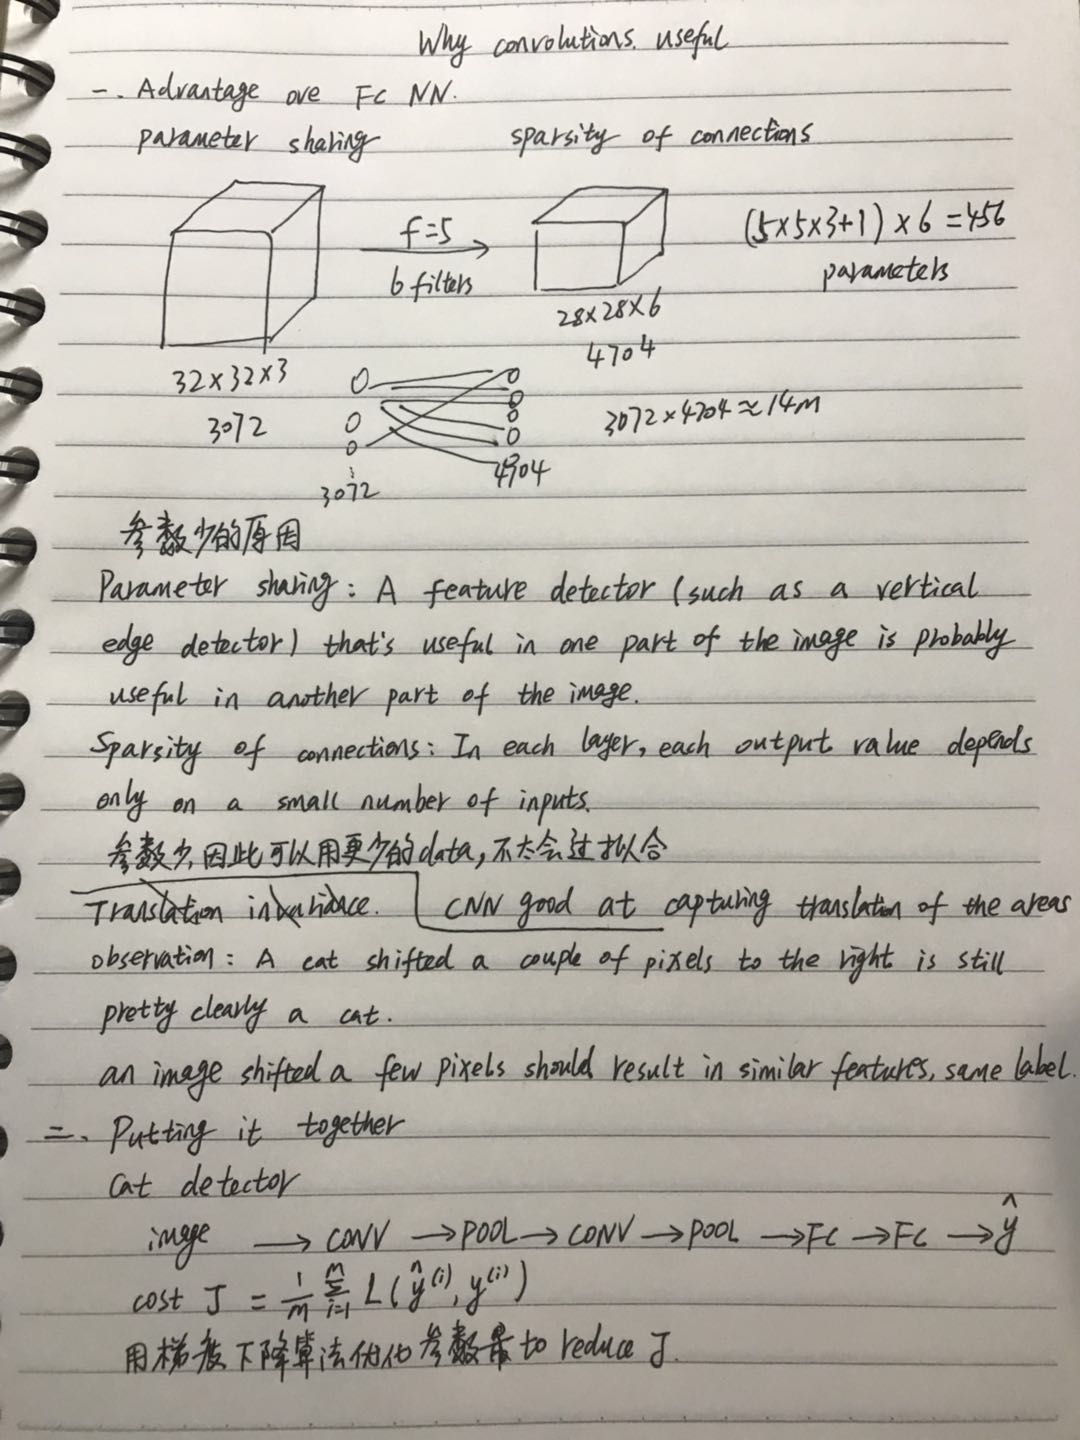 Why convolutions useful
一. Advantage ove FC NN.
parameter sharing sparsity of connections
f=5
6 filters
(5×5×3+1)×6=456
parameters
28×28×6
4704
32×32×3
3072
3072×4704≈14M
3072
4704
参数少的原因
Parameter sharing: A feature detector (such as a vertical
edge detector) that's useful in one part of the image is probably
useful in another part of the image.
Sparsity of connections: In each layer, each output value depends
only on a small number of inputs.
参数少,因此可以用更少的data,不太会过拟合
Translation invariance. CNN good at capturing translation of the areas
observation: A cat shifted a couple of pixels to the right is still
pretty clearly a cat.
an image shifted a few pixels should result in similar features, same label.
二. Putting it together
Cat detector
image → CONV → POOL → CONV → POOL → FC → FC → ŷ
cost J = 1/m Σᵢ₌₁ᵐ L(ŷ⁽ⁱ⁾, y⁽ⁱ⁾)
用梯度下降算法优化参数 to reduce J.